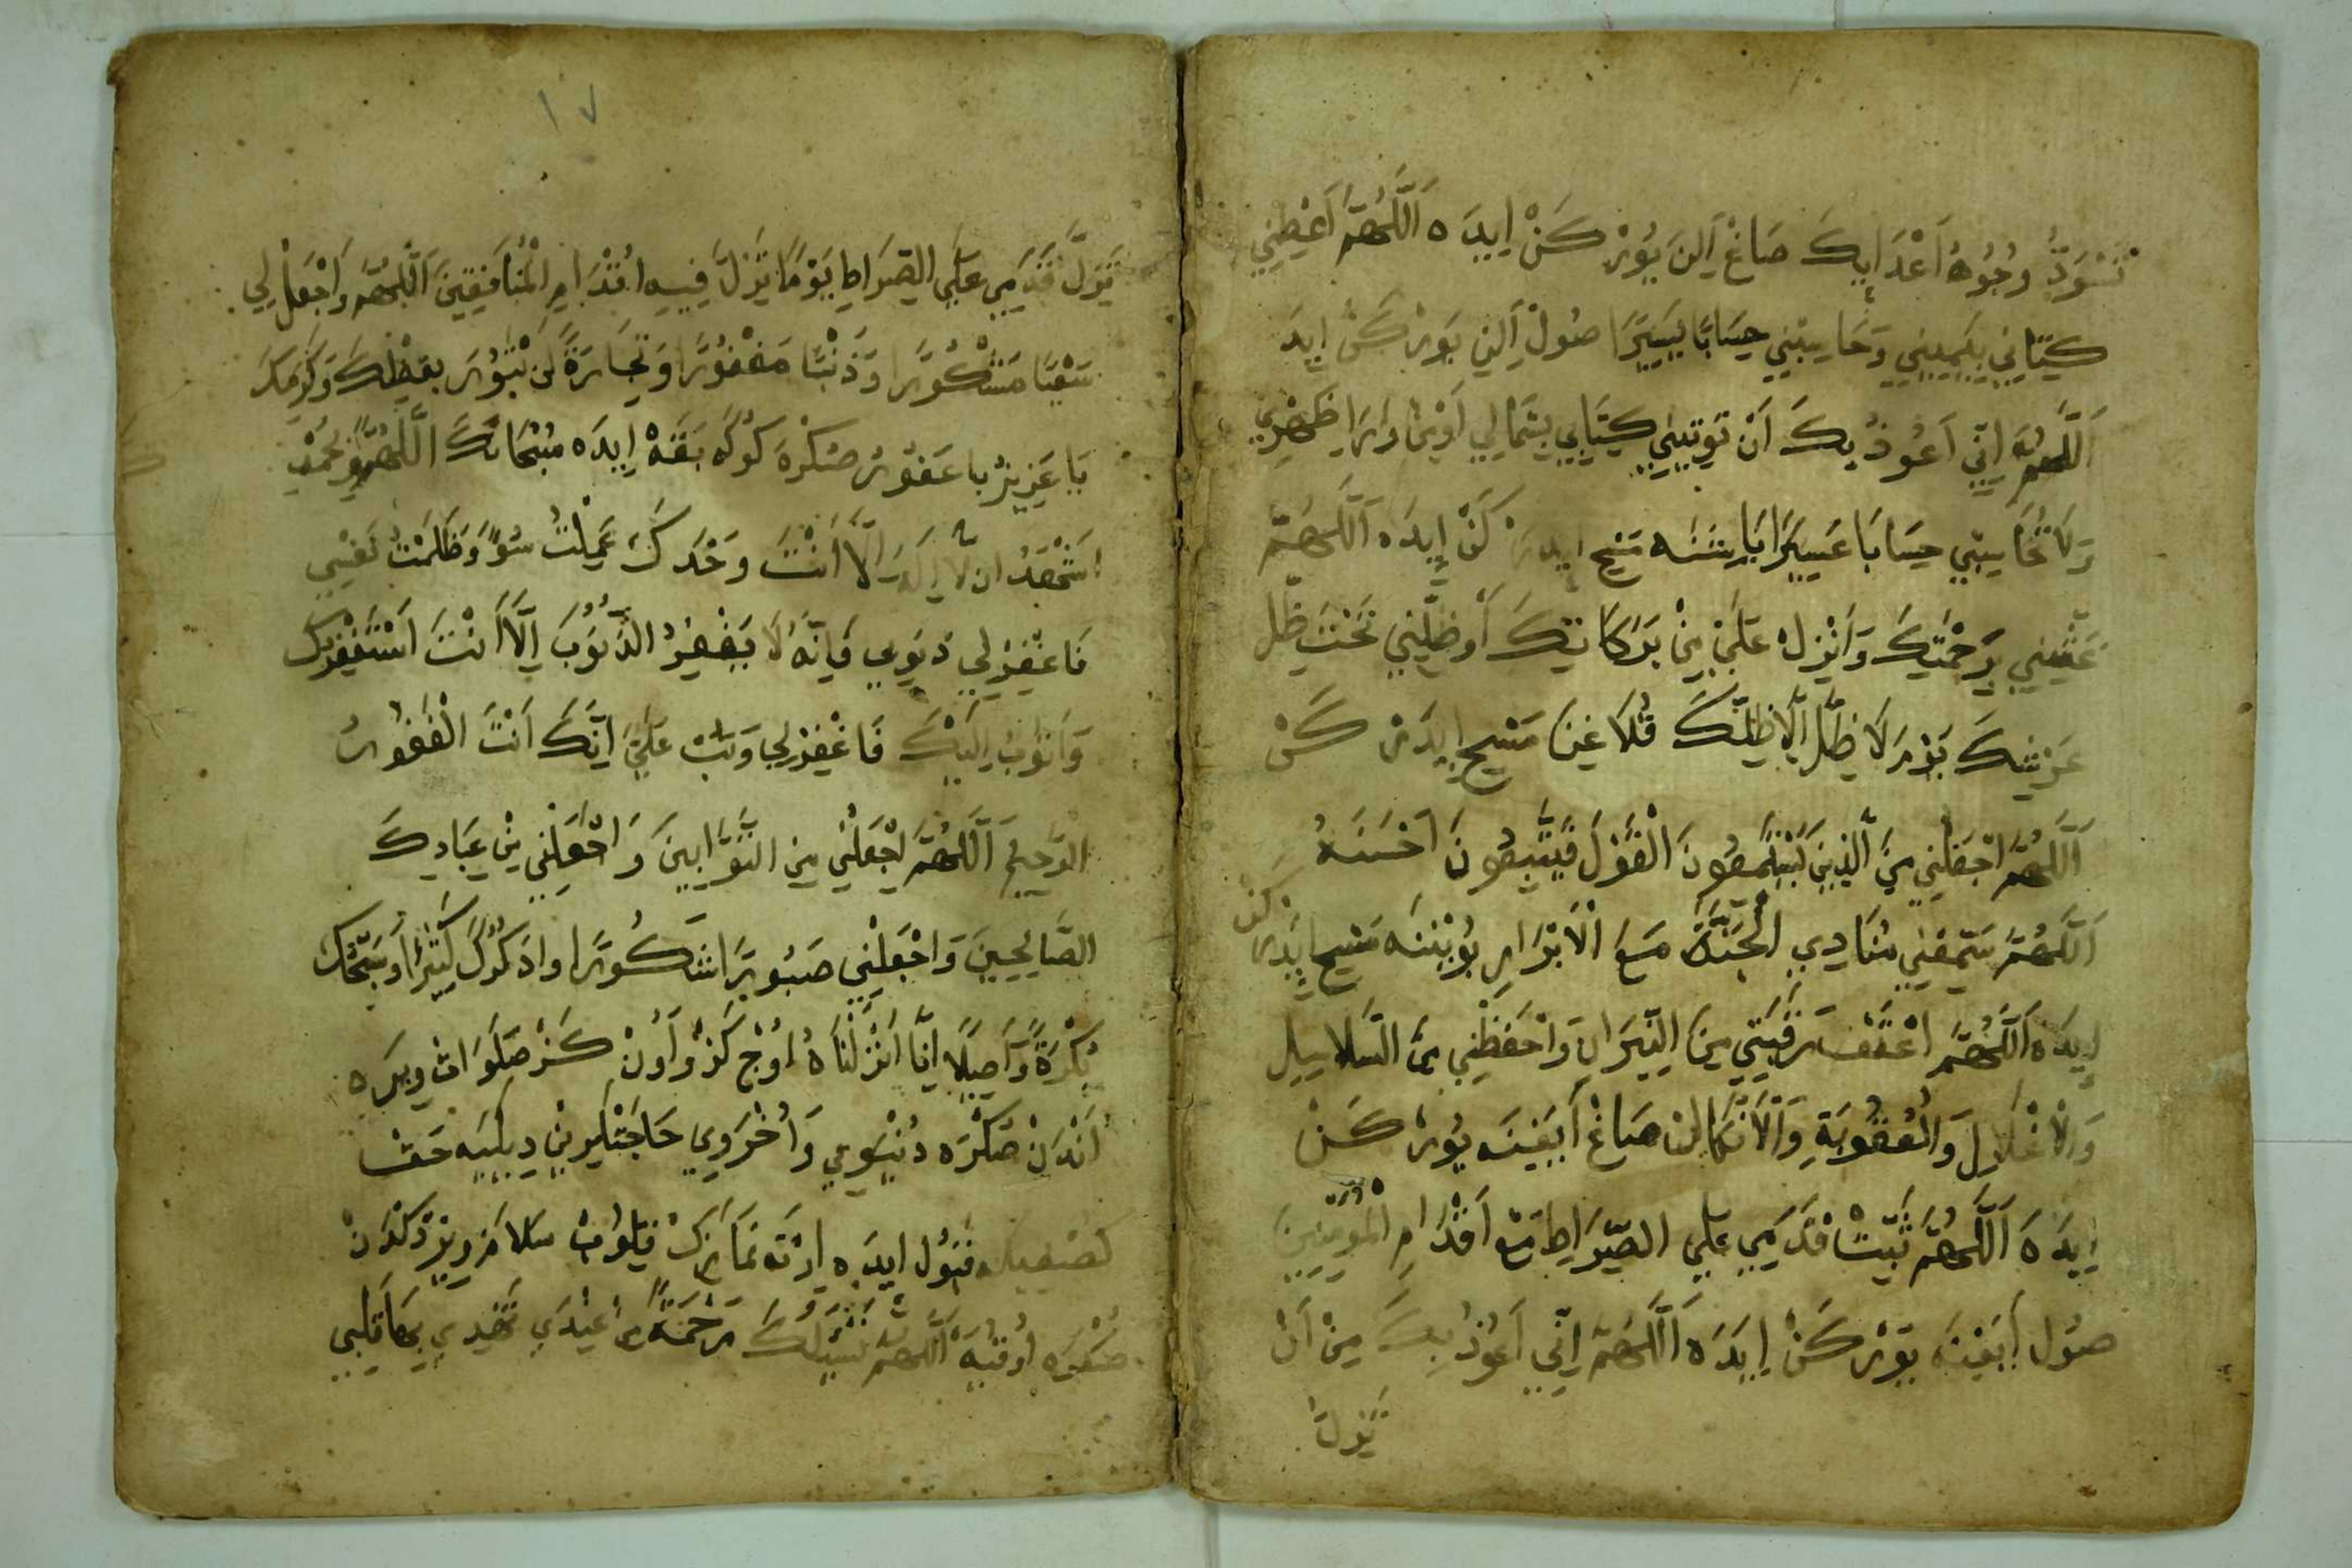 تَسْوَدُّ وُجُوهُ اَعْدَائِكَ صَاغْ اَلِنْ يُورْكَنْ اِيدَه اَللَّهُمَّ اَعْطِنِي
كِتَابِي بِيَمِينِي وَحَاسِبْنِي حِسَابًا يَسِيرًا صُولْ اَلِنِ يُورْكَنْ اِيدَ
اَللَّهُمَّ اِنِّي اَعُوذُ بِكَ اَنْ تُوتِيَنِي كِتَابِي بِشِمَالِي اَوْمِنْ وَرَاءِ ظَهْرِي
وَلَا تُحَاسِبْنِي حِسَابًا عَسِيرًا بَاشِنَه مَسِحْ اِيدَرْ كَنْ اِيدَه اَللَّهُمَّ
غَشِّنِي بِرَحْمَتِكَ وَاَنْزِلْ عَلَيَّ مِنْ بَرَكَاتِكَ اَوْظِلَّنِي تَحْتَ ظِلِّ
عَرْشِكَ يَوْمَ لَا ظِلَّ اِلَّا ظِلُّكَ قُلَاغِنَ مَسِحْ اِيدَرْ كَنْ
اَللَّهُمَّ اجْعَلْنِي مِنَ الَّذِينَ يَسْتَمِعُونَ الْقَوْلَ فَيَتَّبِعُونَ اَحْسَنَهُ
اَللَّهُمَّ سَمِّعْنِي مُنَادِي الْجَنَّةِ مَعَ الْاَبْرَارِ بُويْنِنَه مَسِحْ اِيدَرْ كَنْ
اِيدَه اَللَّهُمَّ اعْتِقْ رَقَبَتِي مِنَ النِّيرَانِ وَاحْفَظْنِي مِنَ السَّلَاسِيلِ
وَالْاَغْلَالِ وَالْعُقُوبَةِ وَالْاَنْكَالِ صَاغْ اَيَغِنَه يُورْ كَنْ
اِيدَه اَللَّهُمَّ ثَبِّتْ قَدَمِي عَلَي الصِّرَاطِ مَعَ اَقْدَامِ الْمُؤْمِنِينَ
صُولْ اَيَغِنَه يُورْ كَنْ اِيدَه اَللَّهُمَّ اِنِّي اَعُوذُ بِكَ مِنْ اَنْ
تَزِلَّ
١٧
تَزِلَّ قَدَمِي عَلَي الصِّرَاطِ يَوْمًا تَزِلُّ فِيهِ اَقْدَامِ الْمُنَافِقِينَ اَللَّهُمَّ وَاجْعَلْ لِي
سَعْيًا مَشْكُورًا وَذَنْبًا مَغْفُورًا وَتِجَارَةً لَنْ تَبُورَ بِفَضْلِكَ وَكَرَمِكَ
يَا عَزِيزُ يَا غَفُورُ صُكْرَه كُوكَه بَقَه اِيدَه سُبْحَانَكَ اللَّهُمَّ وَبِحَمْدِ
اَشْهَدُ اَنْ لَا اِلَهَ اِلَّا اَنْتَ وَحْدَكَ عَمِلْتُ سُوءً وَظَلَمْتُ نَفْسِي
فَاغْفِرْلِي ذُنُوبِي فَاِنَّهُ لَا يَغْفِرُ الذُّنُوبَ اِلَّا اَنْتَ اَسْتَغْفِرُكَ
وَاَتُوبُ اِلَيْكَ فَاغْفِرْلِي وَتُبْ عَلَيَّ اِنَّكَ اَنْتَ الْغَفُورُ
الرَّحِيمُ اَللَّهُمَّ اجْعَلْنِي مِنَ التَّوَّابِينَ وَاجْعَلْنِي مِنْ عِبَادِكَ
الصَّالِحِينَ وَاجْعَلْنِي صَبُورًا شَكُورًا وَاذْكُرُكَ كَثِيرًا اُوَسَبِّحُكَ
بُكْرَةً وَاَصِيلًا اِنَّا اَنْزَلْنَاهُ اُوْچْ كَزْ وَ اُونْ كَزْ صَلَوَاتْ وِيرَه
اَنْدَنْ صُكْرَه دُنْيَوِي وَاُخْرَوِي حَاجَتْلَرِينْ دِيلِيَه حَقْ
قَبُولْ اِيدَه اِرْتَه نَمَازِنْ قِلُوبْ سَلَامْ وِيرْدُكْدَنْ
صُكْرَه اُوقُيَه اَللَّهُمَّ رَحْمَةً مِنْ عِنْدِكَ تَهْدِي بِهَا قَلْبِي